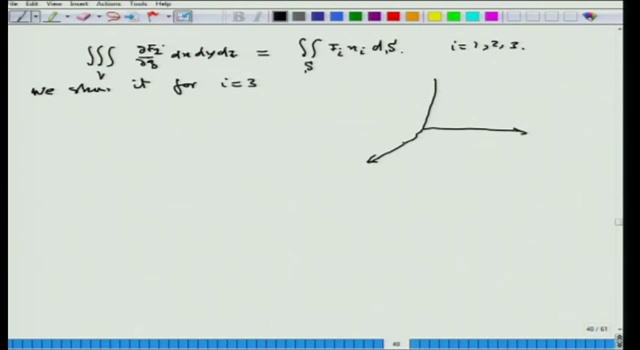 File Edit View Insert Actions Tools Help
∭_V ∂F_i/∂x_i dx dy dz = ∬_S F_i n_i dS. i = 1, 2, 3.
we show it for i = 3
40 / 61
40